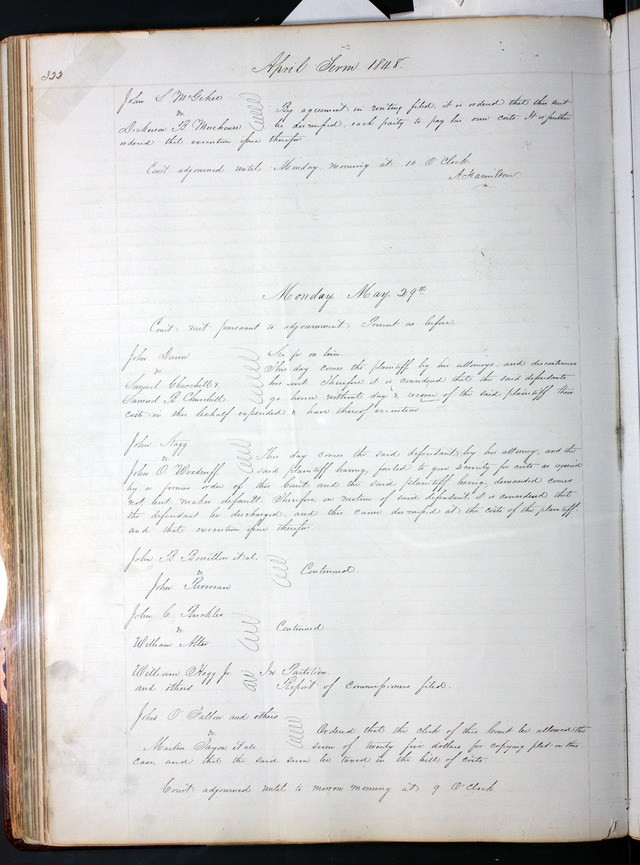 322
April Term 1848.
John S McGehee
vs
By agreement in writing filed, it is ordered that this suit
Dickerson B. Morehouse be dismissed, each party to pay his own costs. It is further
ordered that execution issue therefor
Court adjourned until Monday morning at 10 O'Clock
A. Hamilton
Monday May 29th
Court met pursuant to adjournment Present as before.
John Dunn
vs
Samuel Churchill &
Samuel B. Churchill
Sci fa on lien
This day comes the plaintiff by his attorneys, and discontinues
his suit Therefore it is considered that the said defendants
go hence without day & recover of the said plaintiff their
costs in this behalf expended & have thereof execution
John Nagg
vs
This day comes the said defendant by his attorney, and the
John O. Woodruff said plaintiff having failed to give security for costs as required
by a former order of this Court, and the said plaintiff being demanded comes
not but makes default. Therefore on motion of said defendant it is considered that
the defendant be discharged, and this cause dismissed at the costs of the plaintiff
and that execution issue therefor
John B. et al.
vs
Continued.
John
John C Buckles
vs
Continued
William Alter
William Hogg Jr.
and others
In Partition.
Report of commissioners filed.
John O Fallon and others
vs
Ordered that the clerk of this Court be allowed the
Martin et als sum of twenty five dollars for copying plat in this
case, and that the said sum be taxed in the bill of costs.
Court adjourned until to morrow morning at 9 O'Clock